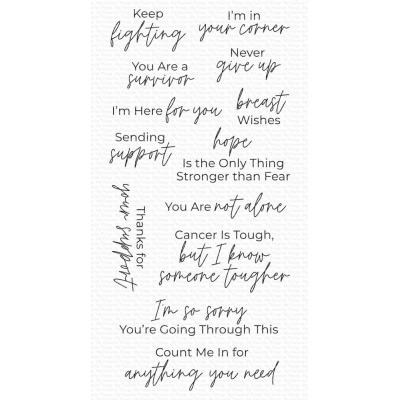 Keep
fighting
I'm in
your corner
You Are a
survivor
Never
give up
I'm Here for you
breast
Wishes
Sending
support
hope
Is the Only Thing
Stronger than Fear
Thanks for
your support
You Are not alone
Cancer Is Tough,
but I know
someone tougher
I'm so sorry
You're Going Through This
Count Me In for
anything you need